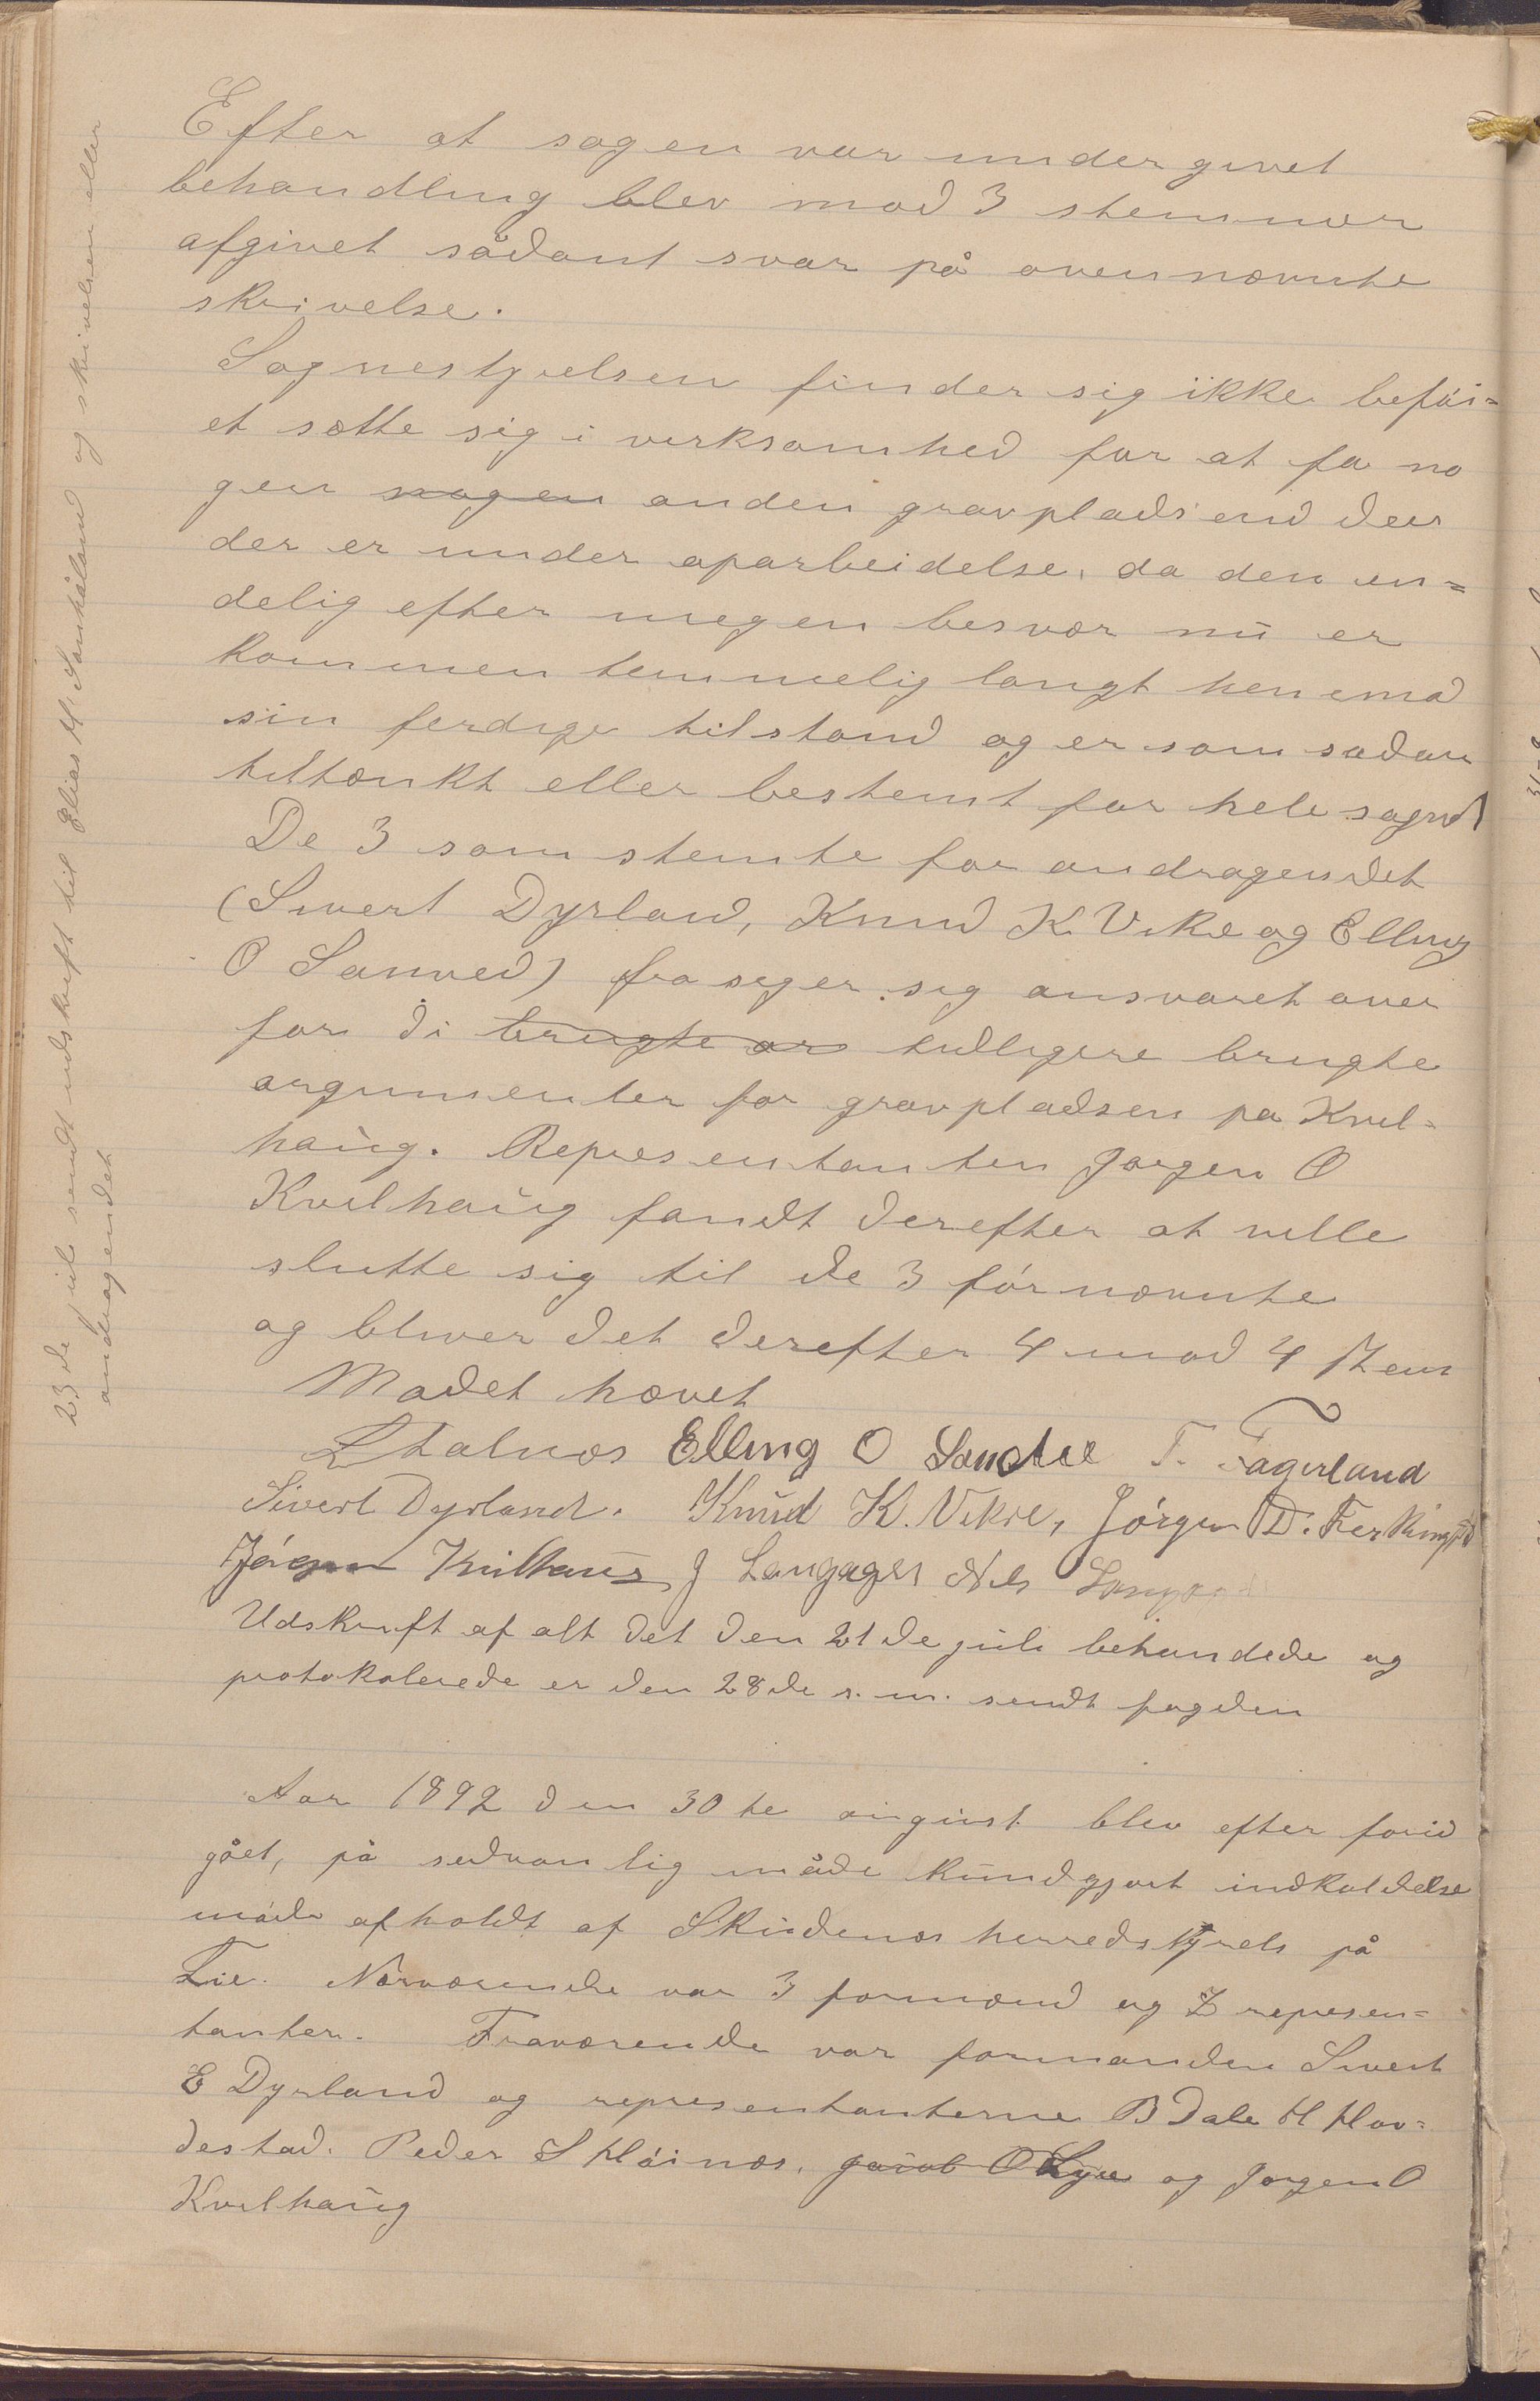 Efter at sagen var undergivet
behandling blev mod 3 stemmer
afgivet sådant svar på ovennævnte
skrivelse.
Sognestyrelsen finder sig ikke beføi=
et sætte sig i virksomhed for at få no
gen nogen anden gravplads end den
der er under oparbeidelse, da den en=
delig efter megen besvær nu er
kommen temmelig langt henimod
sin ferdige tilstand og er som sådan
tiltænkt eller bestemt for hele sognet
De 3 som stemte for andragendet
(Sivert Dyrland, Knud K Vikre og Elling
O Sanved) frasiger sig ansvaret over
for di brugte ar tidligere brugte
argumenter for gravpladsen på Kvil=
haug. Representanten Jørgen O
Kvilhaug fandt derefter at ville
slutte sig til de 3 førnævnte
og bliver det derefter 4 mod 4 stem
Mødet hævet
Elling O T. Fagerland
Sivert Dyrland. Knud K. Vikre, Jørgen D. Ferkingstad
Jørgen Kvilhaug J Langåger Nils
Udskrift af alt det den 21de juli behandede og
protokolerede er den 28de s.m. sendt fogden
Aar 1892 den 30te august blev efter forud
gået, på sedvanlig måde kundgjort indkaldelse
møde afholdt af Skudenæs herredstyrels på
Lie. Nærværende var 3 formænd og 7 represen=
tanter. Fraværende var formanden Sivert
E Dyrland og representanterne B Dale H Hov=
destad. Peder S Høinæs, Jakob O Lye og Jørgen O
Kvilhaug
23de juli sendt udskrift til Elias H. Sandhåland og skrivelsen eller
andragendet